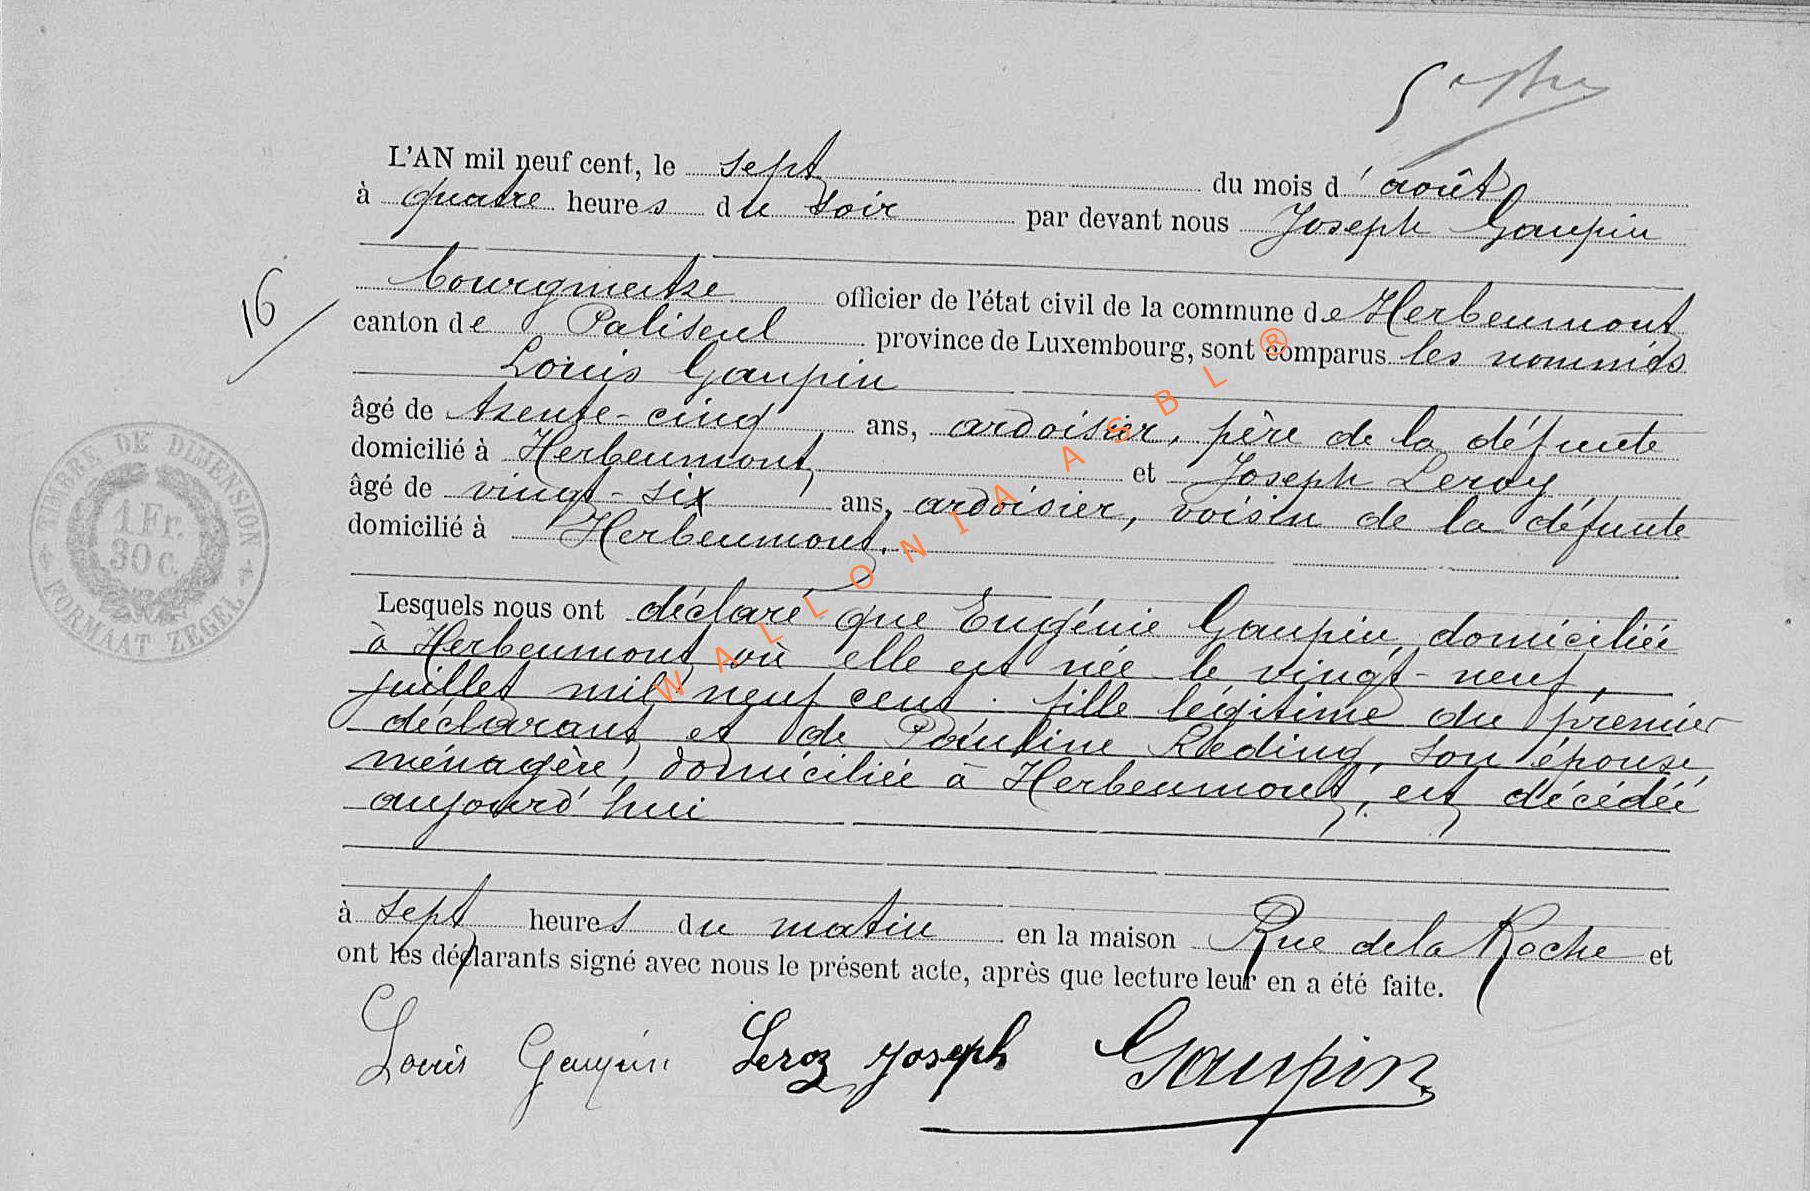 L'AN mil neuf cent, le sept du mois d'août
à quatre heures du soir par devant nous Joseph Gaupin
bourgmestre officier de l'état civil de la commune de Herbeumont
16
canton de Paliseul province de Luxembourg, sont comparus les nommés
Louis Gaupin
âgé de trente-cinq ans, ardoisier, père de la défunte
domicilié à Herbeumont et Joseph Leroy
âgé de vingt-six ans, ardoisier, voisin de la défunte
domicilié à Herbeumont.
TIMBRE DE DIMENSION
1 Fr.
30 c.
FORMAAT ZEGEL
Lesquels nous ont déclaré que Eugénie Gaupin, domiciliée
à Herbeumont où elle est née le vingt-neuf,
juillet mil neuf cent. fille légitime du premier
déclarant et de Pauline Reding, son épouse,
ménagère, domiciliée à Herbeumont, est décédée
aujourd'hui
à sept heures du matin en la maison Rue de la Roche et
ont les déclarants signé avec nous le présent acte, après que lecture leur en a été faite.
Louis Gaupin Leroy Joseph Gaupin
WALLONIA ASBL ®